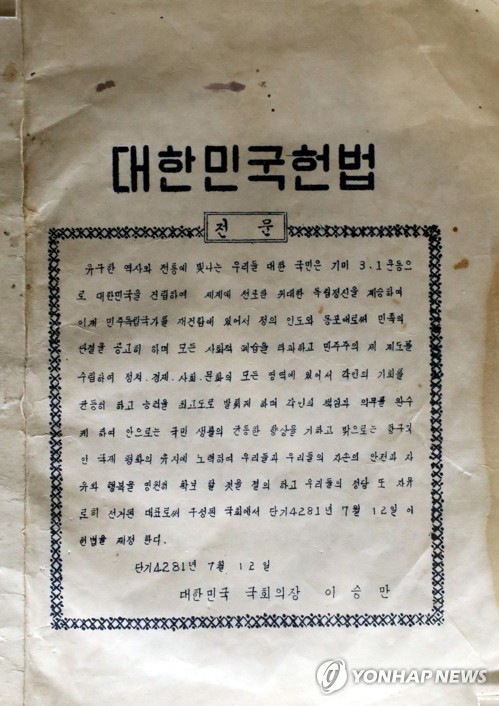 대한민국헌법
전문
유구한 역사와 전통에 빛나는 우리들 대한 국민은 기미 3.1 운동으
로 대한민국을 건립하여 세계에 선포한 위대한 독립정신을 계승하여
이제 민주독립국가를 재건함에 있어서 정의 인도와 동포애로써 민족의
단결을 공고히 하며 모든 사회적 폐습을 타파하고 민주주의 제 제도를
수립하여 정치.경제.사회.문화의 모든 영역에 있어서 각인의 기회를
균등히 하고 능력을 최고도로 발휘케 하며 각인의 책임과 의무를 완수
케 하여 안으로는 국민 생활의 균등한 향상을 기하고 밖으로는 항구적
인 국제 평화의 유지에 노력하여 우리들과 우리들의 자손의 안전과 자
유와 행복을 영원히 확보 할 것을 결의 하고 우리들의 정당 또 자유
로히 선거된 대표로써 구성된 국회에서 단기4281년 7월 12일 이
헌법을 제정 한다.
단기4281년 7월 12일
대한민국 국회의장 이승만
YONHAP NEWS